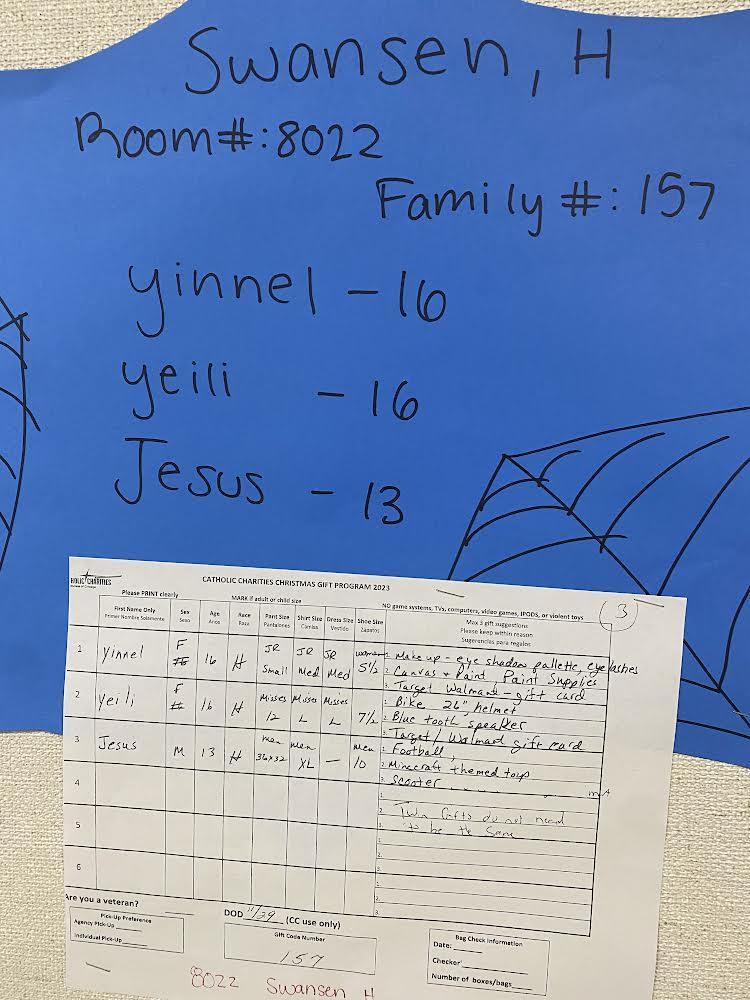 Swansen, H
Room#:8022
Family #: 157
yinnel - 16
yeili - 16
Jesus - 13
HOLIC CHARITIES
CATHOLIC CHARITIES CHRISTMAS GIFT PROGRAM 2023
Please PRINT clearly
MARK if adult or child size
NO game systems, TVs, computers, video games, IPODS, or violent toys
3
First Name Only Sex Age Race Pant Size Shirt Size Dress Size Shoe Size Max 3 gift suggestions
Primer Nombre Solamente Sexo Anos Raza Pantalones Camisa Vestido Zapatos Please keep within reason
Sugerencias para regalos
1 Yinnel F 16 H JR Small JR Med JR Med womens 5 1/2
1. Make up - eye shadow pallette, eye lashes
2. Canvas + Paint, Paint Supplies
3. Target Walmart - gift card
2 Yeili F 16 H Misses 12 Misses L Misses L 7 1/2
1. Bike 26", helmet
2. Blue tooth speaker
3. Target/ Walmart gift card
3 Jesus M 13 H men 36x32 men XL — men 10
1. Football,
2. Minecraft themed toys
3. Scooter
4
1.
2. Twin Gifts do not need
to be the same
5
6
Are you a veteran?
Pick-Up Preference
Agency Pick-Up
Individual Pick-Up
DOD 11/29 (CC use only)
Gift Code Number
157
Bag Check Information
Date:
Checker
Number of boxes/bags
8022 Swansen H